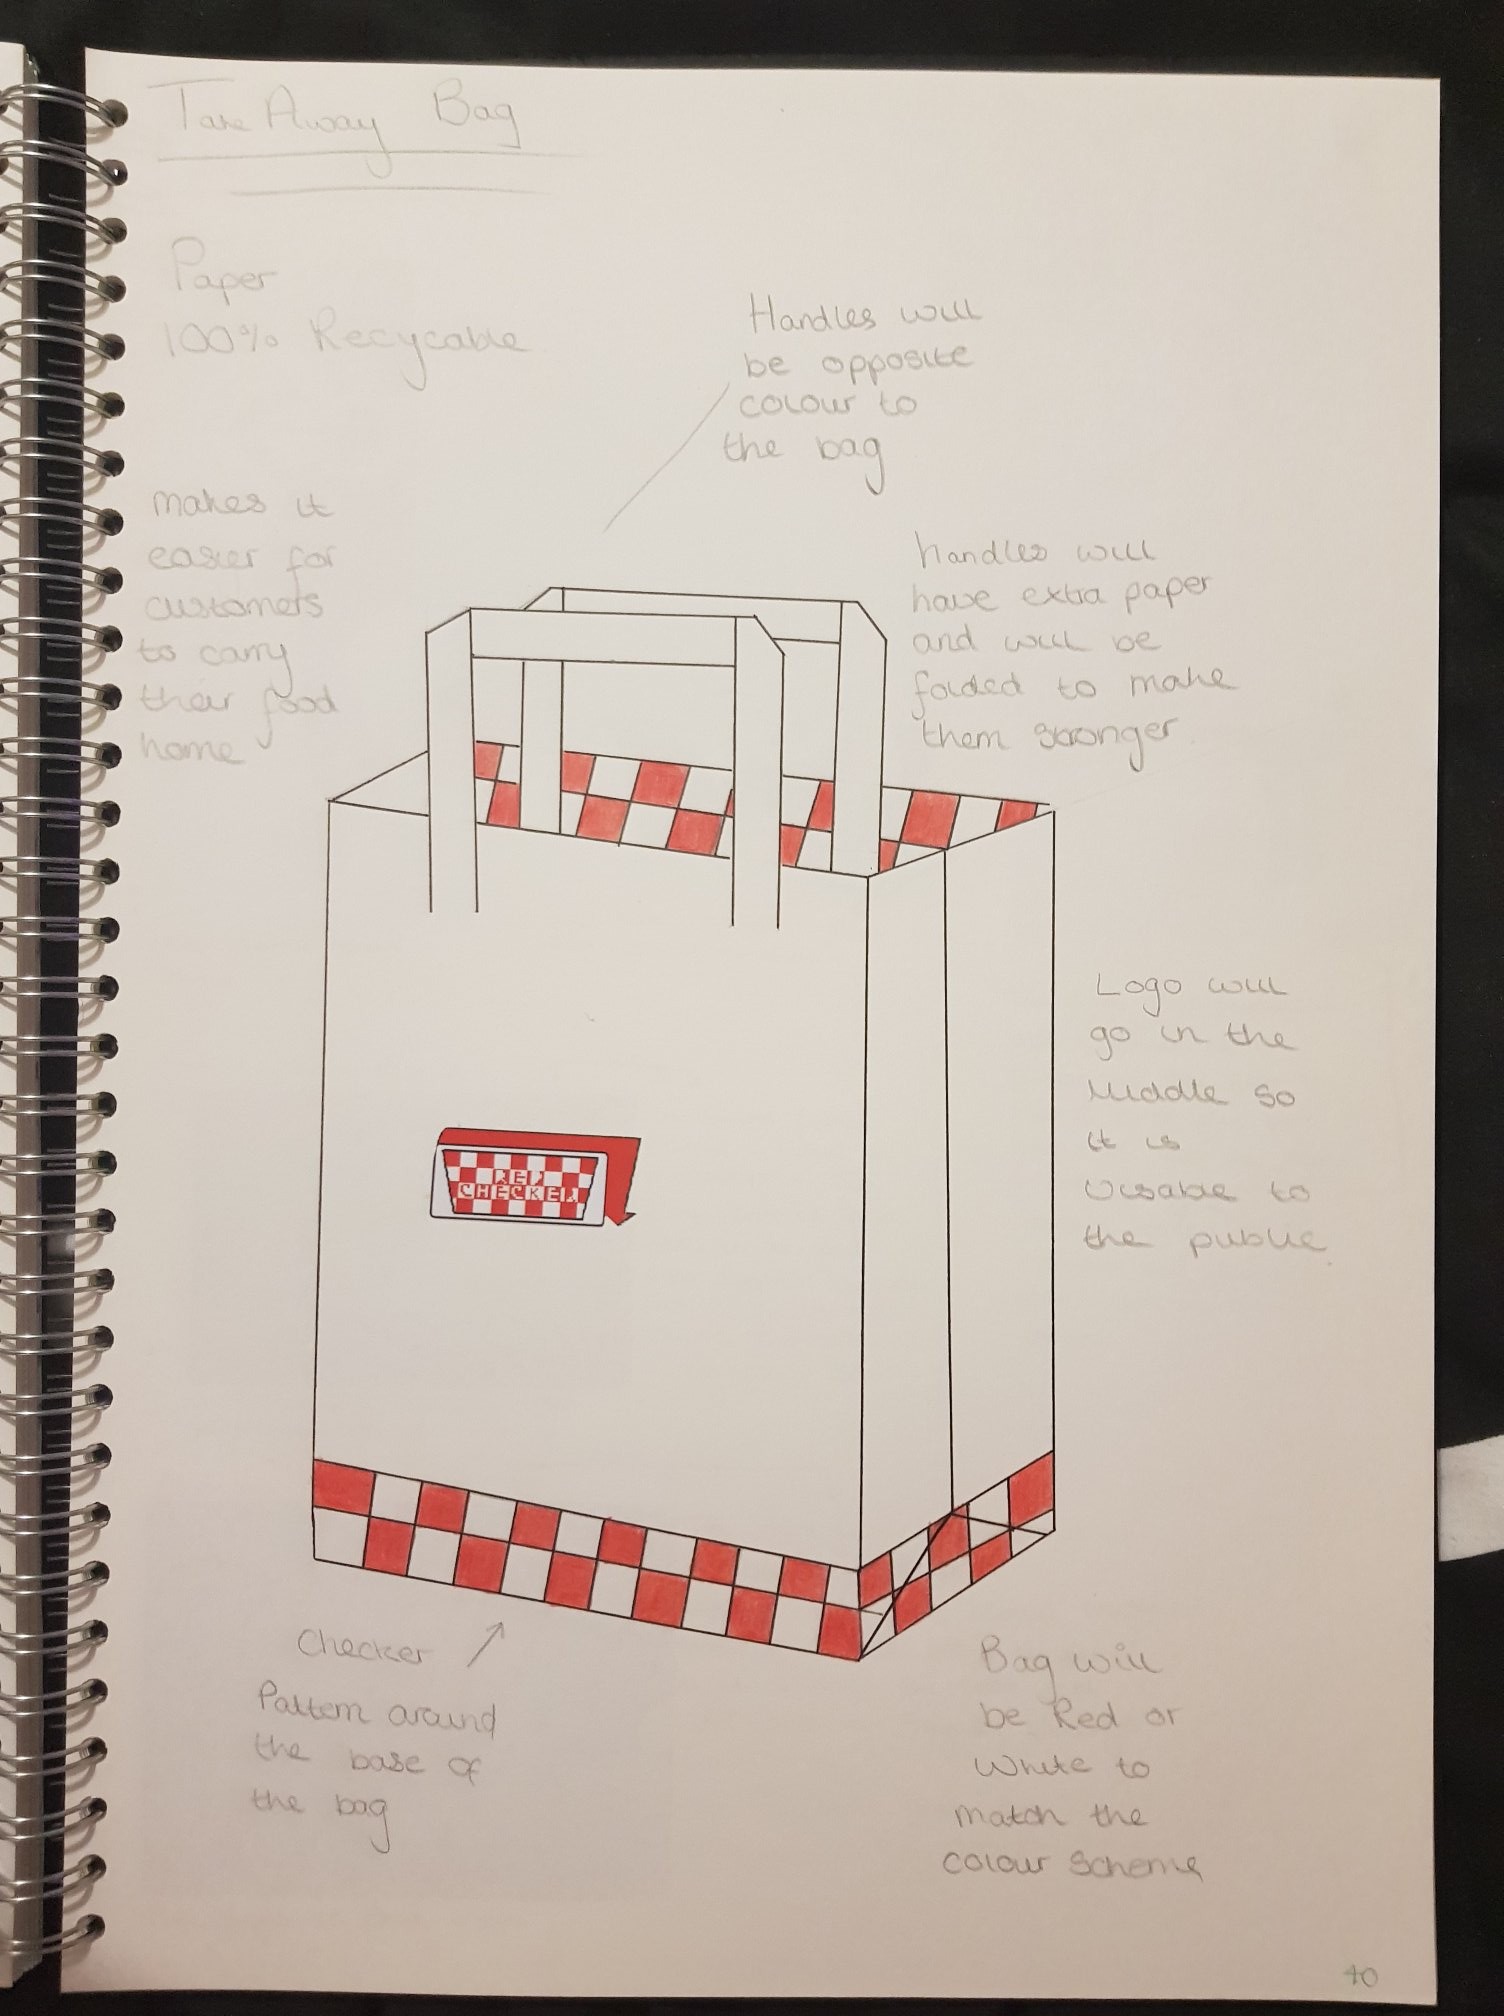 Take Away Bag
Paper
100% Recycable
Handles will
be opposite
colour to
the bag
makes it
easier for
customers
to carry
their food
home
handles will
have extra paper
and will be
folded to make
them stronger
Logo will
go in the
Middle so
it is
visable to
the public.
RED
CHECKER
Checker
Pattern around
the base of
the bag
Bag will
be Red or
White to
match the
colour scheme
40